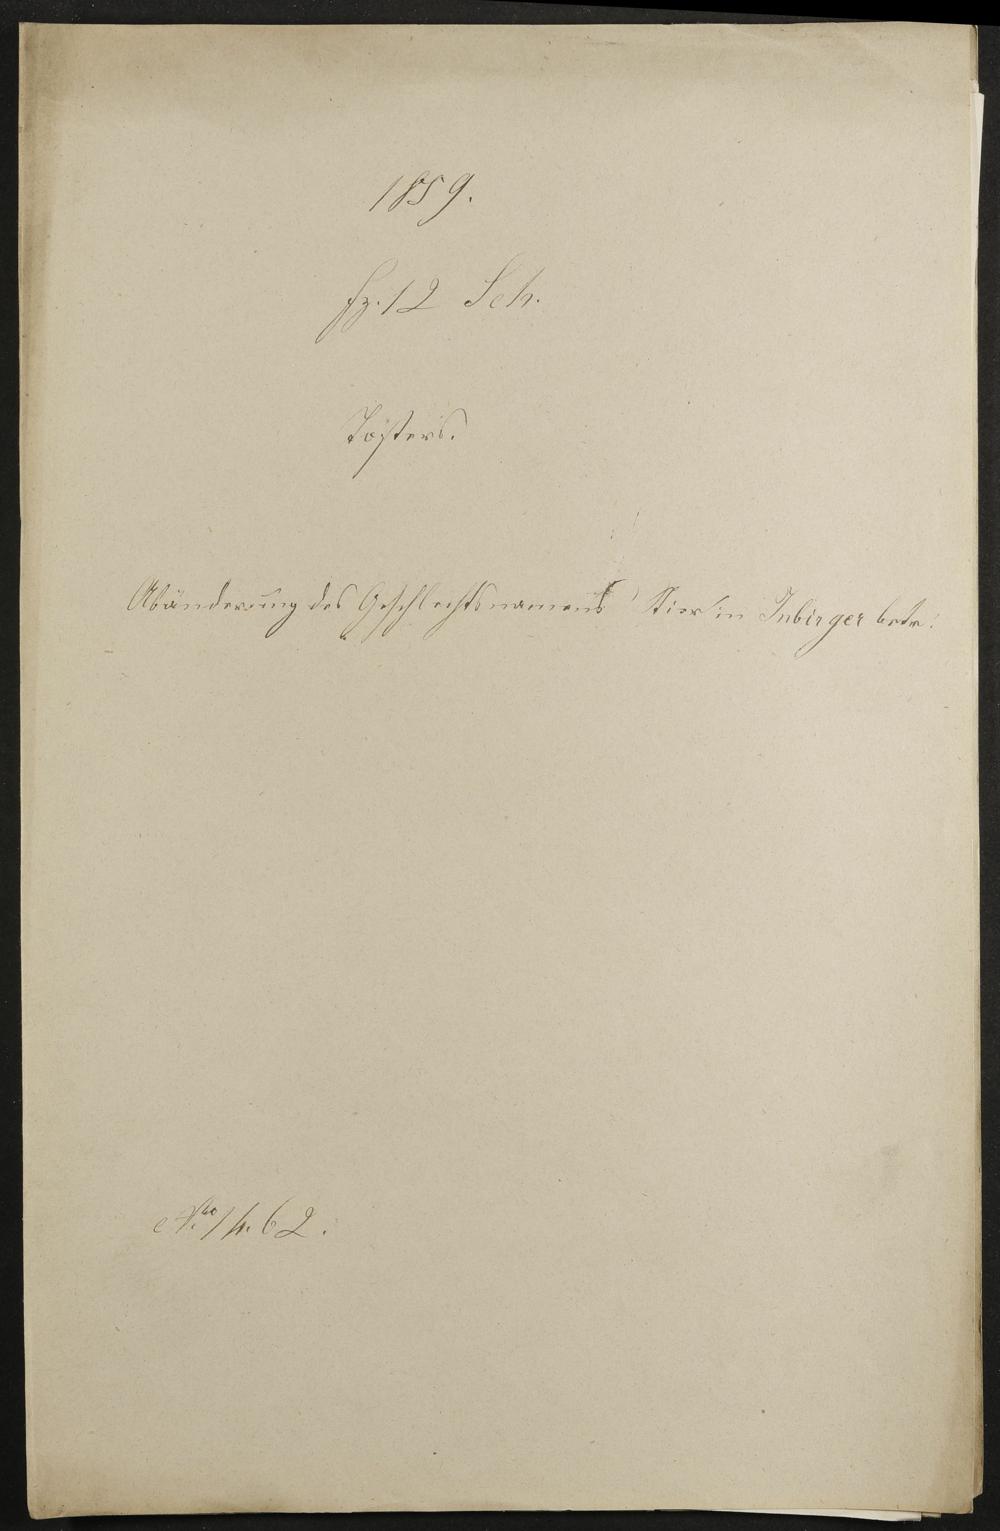 1859.
Fz. 12 Sch.
Tosters.
Abänderung des Geschlechtsnamens "Stier" in Inbirger betr.
No 14.62.